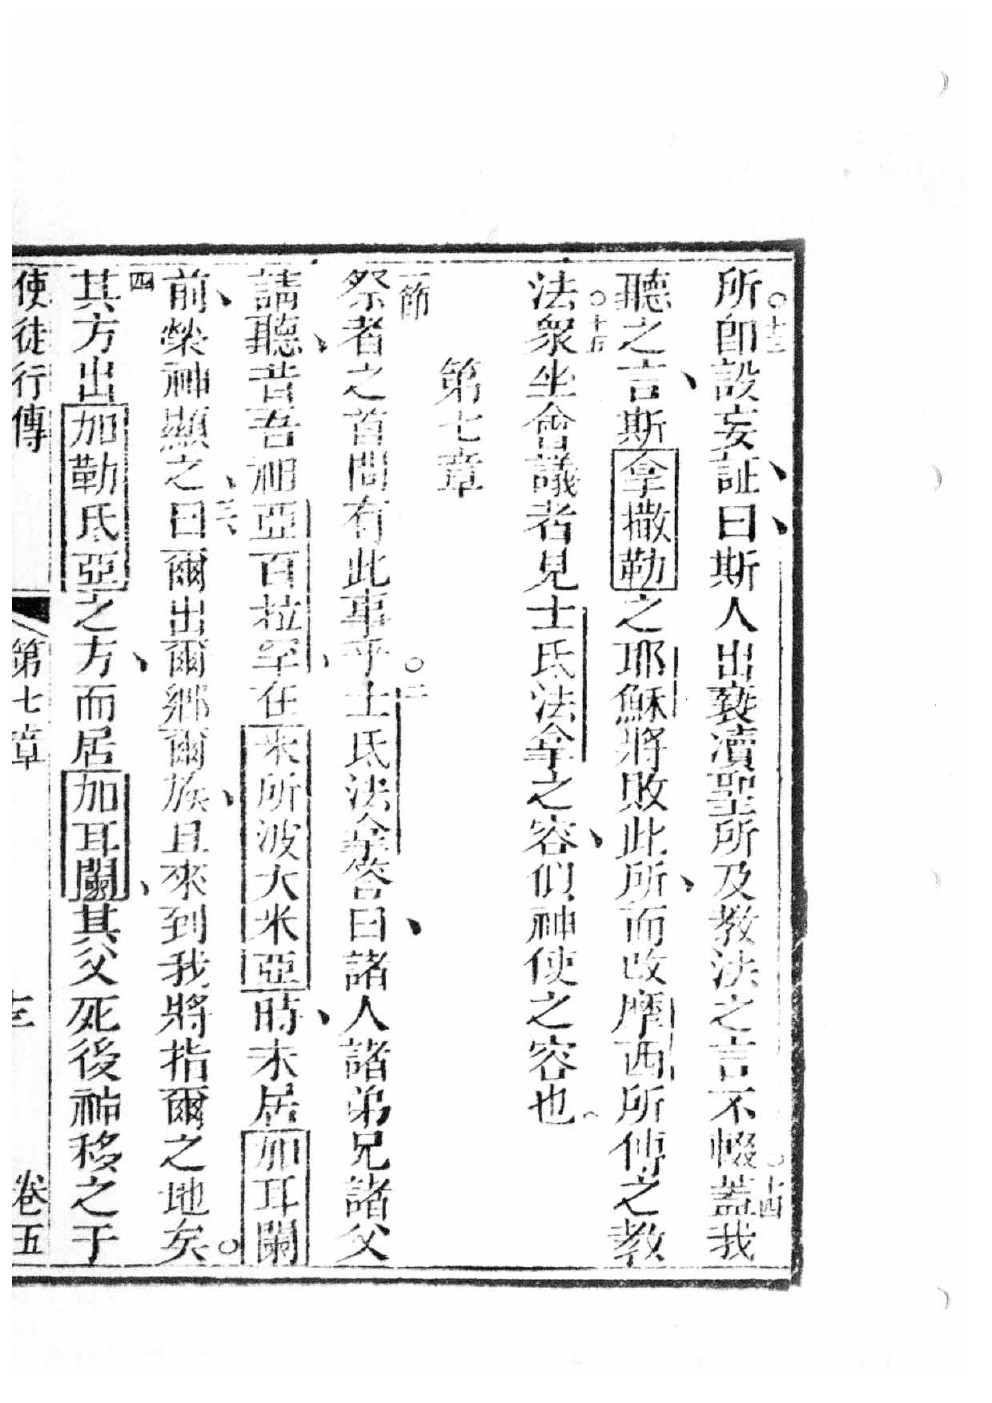 所即設妄証曰斯人出褻瀆聖所及教法之言不輟蓋我
聽之言斯拿撒勒之耶穌將敗此所而改摩西所傳之教
法眾坐會議者見士氏法拿之容似神使之容也
第七章
祭者之首問有此事乎士氐法拿答曰諸人諸弟兄諸父
請聽昔吾祖亞百拉罕在米所波大米亞時未居加耳闌
前榮神顯之曰爾出爾鄉爾族且來到我將指爾之地矣
其方出加勒氏亞之方而居加耳闌其父死後神移之于
使徒行傳 第七章 卷五